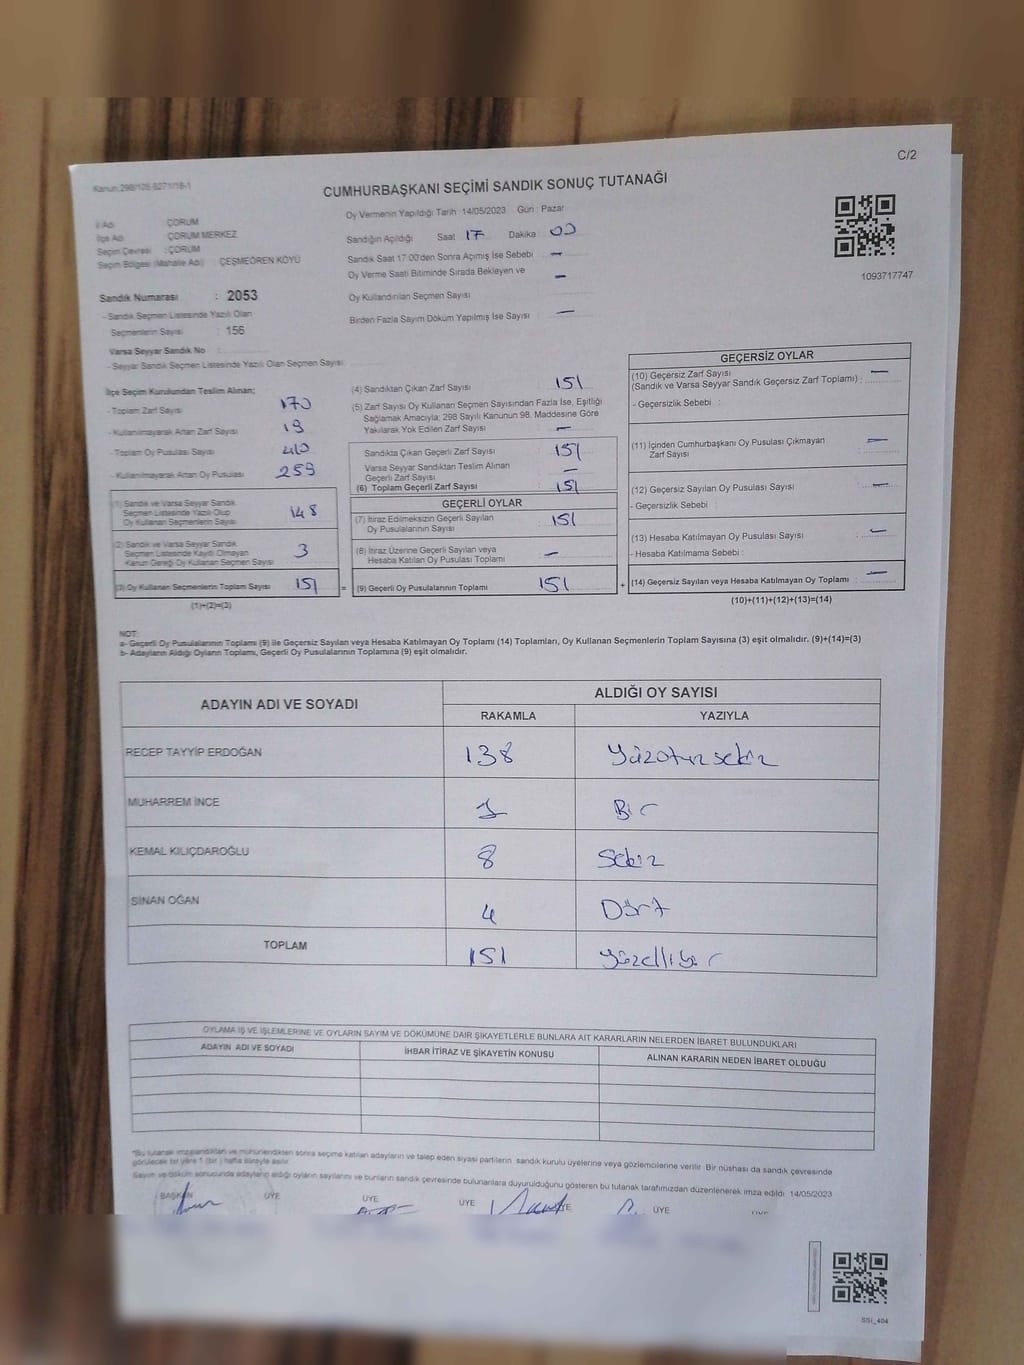 C/2
Kanun:298/105-6271/18-1
CUMHURBAŞKANI SEÇİMİ SANDIK SONUÇ TUTANAĞI
İl Adı : ÇORUM
İlçe Adı : ÇORUM MERKEZ
Seçim Çevresi : ÇORUM
Seçim Bölgesi (Mahalle Adı) : ÇEŞMEÖREN KÖYÜ
Oy Vermenin Yapıldığı Tarih 14/05/2023 Gün: Pazar
Sandığın Açıldığı Saat 17 Dakika 00
Sandık Saat 17:00'den Sonra Açmış İse Sebebi —
Oy Verme Saati Bitiminde Sırada Bekleyen ve —
Oy Kullandırılan Seçmen Sayısı
Birden Fazla Sayım Döküm Yapılmış İse Sayısı —
1093717747
Sandık Numarası : 2053
- Sandık Seçmen Listesinde Yazılı Olan
Seçmenlerin Sayısı : 156
Varsa Seyyar Sandık No :
- Seyyar Sandık Seçmen Listesinde Yazılı Olan Seçmen Sayısı:
İlçe Seçim Kurulundan Teslim Alınan;
- Toplam Zarf Sayısı 170
- Kullanılmayarak Artan Zarf Sayısı 19
- Toplam Oy Pusulası Sayısı 410
- Kullanılmayarak Artan Oy Pusulası 259
(1) Sandık ve Varsa Seyyar Sandık
Seçmen Listesinde Yazılı Olup
Oy Kullanan Seçmenlerin Sayısı 148
(2) Sandık ve Varsa Seyyar Sandık
Seçmen Listesinde Kaydı Olmayan
Kanun Gereği Oy Kullanan Seçmen Sayısı 3
(3) Oy Kullanan Seçmenlerin Toplam Sayısı 151 =
(1)+(2)=(3)
(4) Sandıktan Çıkan Zarf Sayısı 151
(5) Zarf Sayısı Oy Kullanan Seçmen Sayısından Fazla İse, Eşitliği
Sağlamak Amacıyla; 298 Sayılı Kanunun 98. Maddesine Göre
Yakılarak Yok Edilen Zarf Sayısı —
Sandıkta Çıkan Geçerli Zarf Sayısı 151
Varsa Seyyar Sandıktan Teslim Alınan
Geçerli Zarf Sayısı —
(6) Toplam Geçerli Zarf Sayısı 151
GEÇERLİ OYLAR
(7) İtiraz Edilmeksizin Geçerli Sayılan
Oy Pusulalarının Sayısı 151
(8) İtiraz Üzerine Geçerli Sayılan veya
Hesaba Katılan Oy Pusulası Toplamı —
(9) Geçerli Oy Pusulalarının Toplamı 151 +
GEÇERSİZ OYLAR
(10) Geçersiz Zarf Sayısı —
(Sandık ve Varsa Seyyar Sandık Geçersiz Zarf Toplamı) :
- Geçersizlik Sebebi :
(11) İçinden Cumhurbaşkanı Oy Pusulası Çıkmayan —
Zarf Sayısı :
(12) Geçersiz Sayılan Oy Pusulası Sayısı : —
- Geçersizlik Sebebi :
(13) Hesaba Katılmayan Oy Pusulası Sayısı : —
- Hesaba Katılmama Sebebi :
(14) Geçersiz Sayılan veya Hesaba Katılmayan Oy Toplamı : —
(10)+(11)+(12)+(13)=(14)
NOT:
a- Geçerli Oy Pusulalarının Toplamı (9) ile Geçersiz Sayılan veya Hesaba Katılmayan Oy Toplamı (14) Toplamları, Oy Kullanan Seçmenlerin Toplam Sayısına (3) eşit olmalıdır. (9)+(14)=(3)
b- Adayların Aldığı Oyların Toplamı, Geçerli Oy Pusulalarının Toplamına (9) eşit olmalıdır.
ADAYIN ADI VE SOYADI
ALDIĞI OY SAYISI
RAKAMLA YAZIYLA
RECEP TAYYİP ERDOĞAN 138 Yüzotuzsekiz
MUHARREM İNCE 1 Bir
KEMAL KILIÇDAROĞLU 8 Sekiz
SİNAN OĞAN 4 Dört
TOPLAM 151 Yüzellibir
OYLAMA İŞ VE İŞLEMLERİNE VE OYLARIN SAYIM VE DÖKÜMÜNE DAİR ŞİKAYETLERLE BUNLARA AİT KARARLARIN NELERDEN İBARET BULUNDUKLARI
ADAYIN ADI VE SOYADI İHBAR İTİRAZ VE ŞİKAYETİN KONUSU ALINAN KARARIN NEDEN İBARET OLDUĞU
*Bu tutanak imzalandıktan ve mühürlendikten sonra seçime katılan adayların ve talep eden siyasi partilerin sandık kurulu üyelerine veya gözlemcilerine verilir. Bir nüshası da sandık çevresinde
görülecek bir yere 1 (bir) hafta süreyle asılır.
Sayım ve döküm sonucunda adayların aldığı oyların sayılarını ve bunların sandık çevresinde bulunanlara duyurulduğunu gösteren bu tutanak tarafımızdan düzenlenerek imza edildi. 14/05/2023
BAŞKAN ÜYE ÜYE ÜYE ÜYE ÜYE
SSI_404